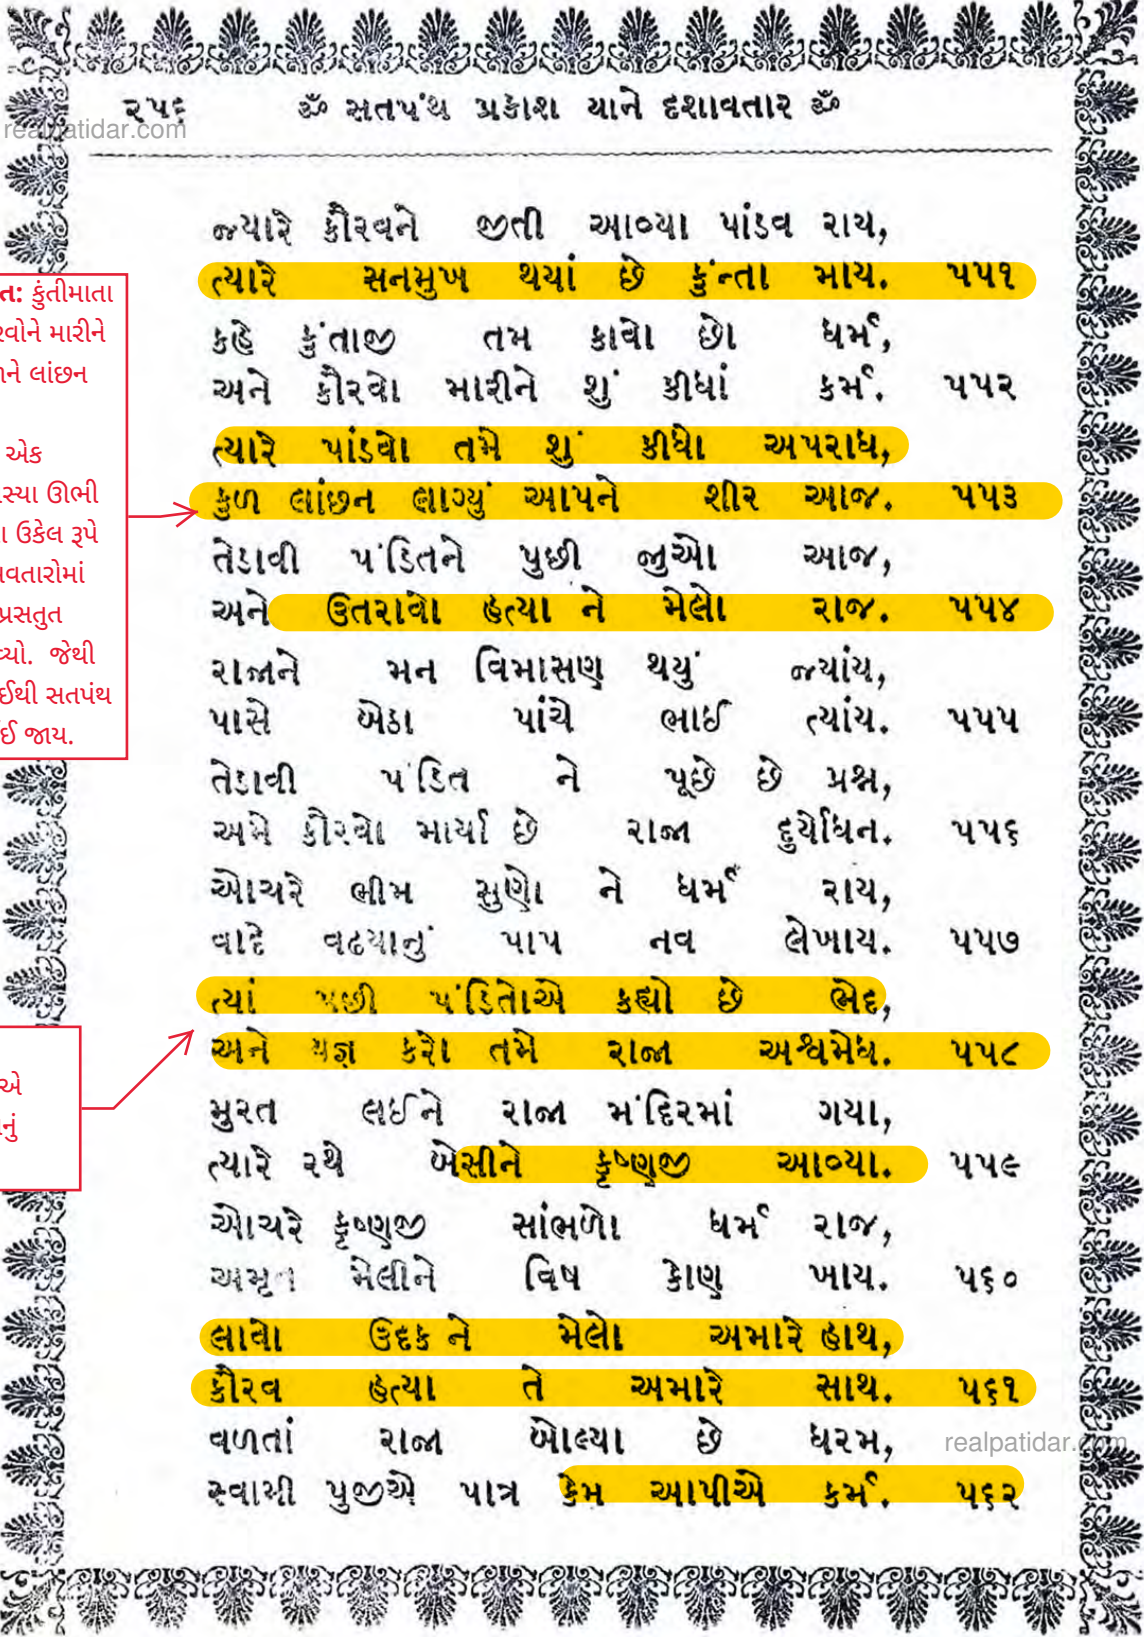 ૨૫૬ ૐ સતપંથ પ્રકાશ યાને દશાવતાર ૐ
realpatidar.com
જ્યારે કૌરવને જીતી આવ્યા પાંડવ રાય,
ત્યારે સનમુખ થયાં છે કુંન્તા માય. ૫૫૧
કહે કુંતાજી તમ કાવો છો ધર્મ,
અને કૌરવો મારીને શું કીધાં કર્મ. ૫૫૨
ત્યારે પાંડવો તમે શું કીધો અપરાધ,
કુળ લાંછન લાગ્યું આપને શીર આજ. ૫૫૩
તેડાવી પંડિતને પુછી જુઓ આજ,
અને ઉતરાવો હત્યા ને મેલો રાજ. ૫૫૪
રાજાને મન વિમાસણ થયું જ્યાંય,
પાસે બેઠા પાંચે ભાઈ ત્યાંય. ૫૫૫
તેડાવી પંડિત ને પૂછે છે પ્રશ્ન,
અમે કૌરવો માર્યા છે રાજા દુર્યોધન. ૫૫૬
ઓચરે ભીમ સુણો ને ધર્મ રાય,
વાદે વઢયાનું પાપ નવ લેખાય. ૫૫૭
ત્યાં પછી પંડિતોએ કહ્યો છે ભેદ,
અને યજ્ઞ કરો તમે રાજા અશ્વમેધ. ૫૫૮
મુરત લઈને રાજા મંદિરમાં ગયા,
ત્યારે રથે બેસીને કૃષ્ણજી આવ્યા. ૫૫૯
ઓચરે કૃષ્ણજી સાંભળો ધર્મ રાજ,
અમૃત મેલીને વિષ કોણ ખાય. ૫૬૦
લાવો ઉદક ને મેલો અમારે હાથ,
કૌરવ હત્યા તે અમારે સાથ. ૫૬૧
વળતાં રાજા બોલ્યા છે ધરમ,
સ્વામી પુજીએ પાત્ર કેમ આપીએ કર્મ. ૫૬૨
realpatidar.com
ત: કુંતીમાતા
રવોને મારીને
ને લાંછન
એક
સ્યા ઊભી
ા ઉકેલ રૂપે
વતારોમાં
પ્રસતુત
વ્યો. જેથી
ઈથી સતપંથ
ઈ જાય.
એ
નું